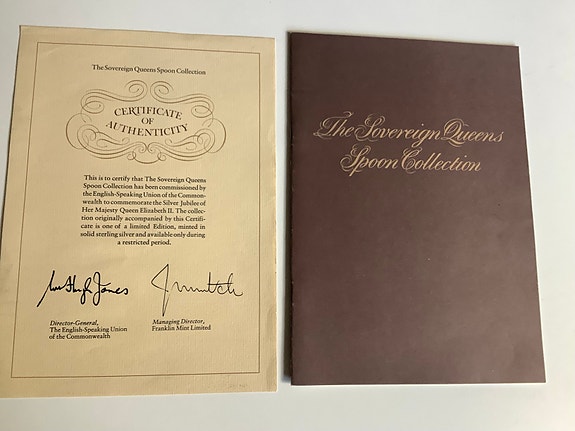 The Sovereign Queens Spoon Collection
CERTIFICATE
OF
AUTHENTICITY
This is to certify that The Sovereign Queens
Spoon Collection has been commissioned by
the English-Speaking Union of the Common-
wealth to commemorate the Silver Jubilee of
Her Majesty Queen Elizabeth II. The collec-
tion originally accompanied by this Certifi-
cate is one of a limited Edition, minted in
solid sterling silver and available only during
a restricted period.
Director-General,
The English-Speaking Union
of the Commonwealth
Managing Director,
Franklin Mint Limited
The Sovereign Queens
Spoon Collection